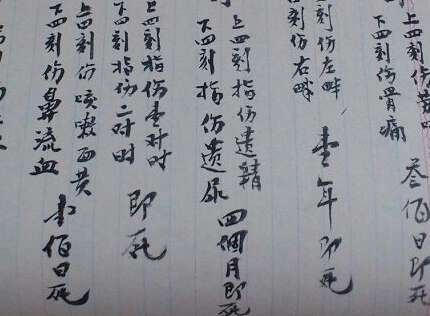 上四刻伤
下四刻伤骨痛
叁佰日即死
刻伤左畔
刻伤右畔
壹年即死
上四刻指伤遗精
下四刻指伤遗尿
四個月即死
上四刻指伤壹对时
下四刻指伤二对时
即死
上四刻伤咳嗽面黄
下四刻伤鼻流血
壹佰日死